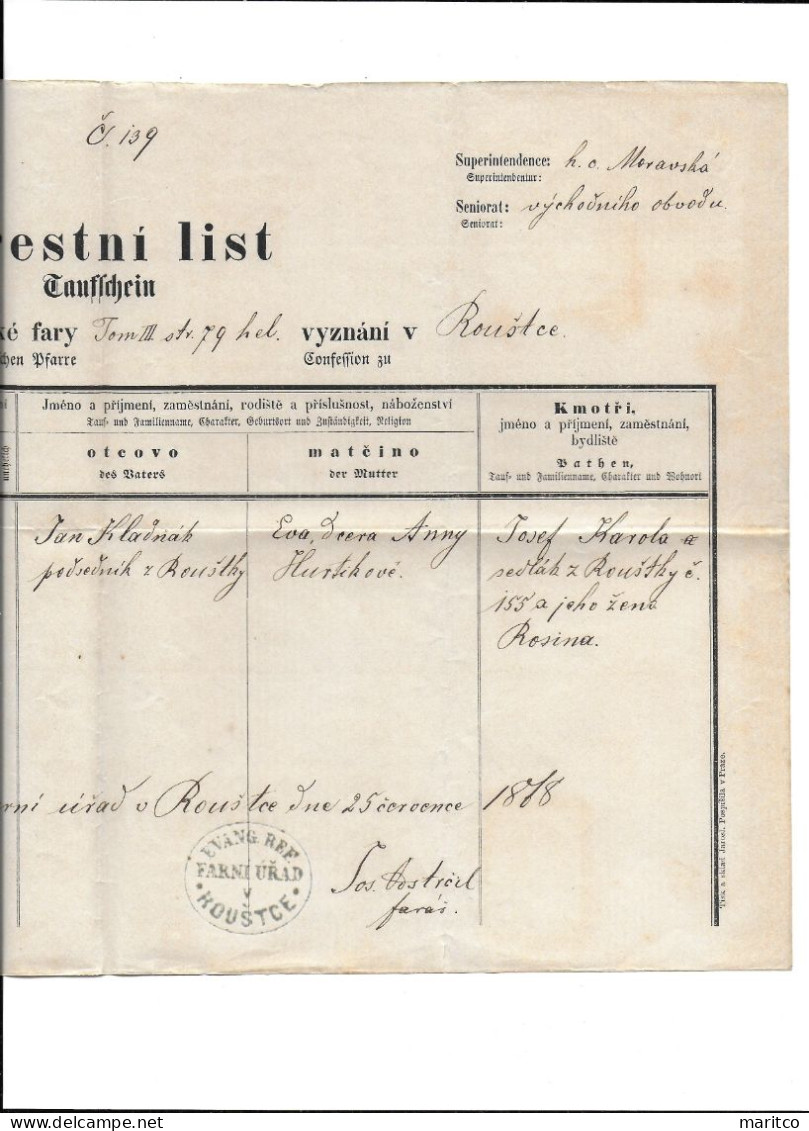 Č. 139
Superintendence: h. c. Moravská
Superintendentur:
Seniorat: východního obvodu
Seniorat:
restní list
Taufschein
ké fary Tom III str. 79 hel. vyznání v Rouštce.
schen Pfarre Confession zu
Jméno a příjmení, zaměstnání, rodiště a příslušnost, náboženství
Tauf- und Familienname, Charakter, Geburtsort und Zuständigkeit, Religion
otcovo
des Vaters
matčino
der Mutter
Kmotři,
jméno a příjmení, zaměstnání,
bydliště
Pathen,
Tauf- und Familienname, Charakter und Wohnort
unehelich
Jan Kladňák
podsedník z Rouštky
Eva, dcera Anny
Hurtíkové.
Josef Karola a
sedlák z Rouštky č.
155 a jeho žena
Rosina.
rní úřad v Rouštce dne 25 července 1868
EVANG. REF.
FARNÍ ÚŘAD
V
ROUŠTCE
Jos. Odstrčil
farář.
Tisk a sklad Jarosl. Pospíšila v Praze.
maritco